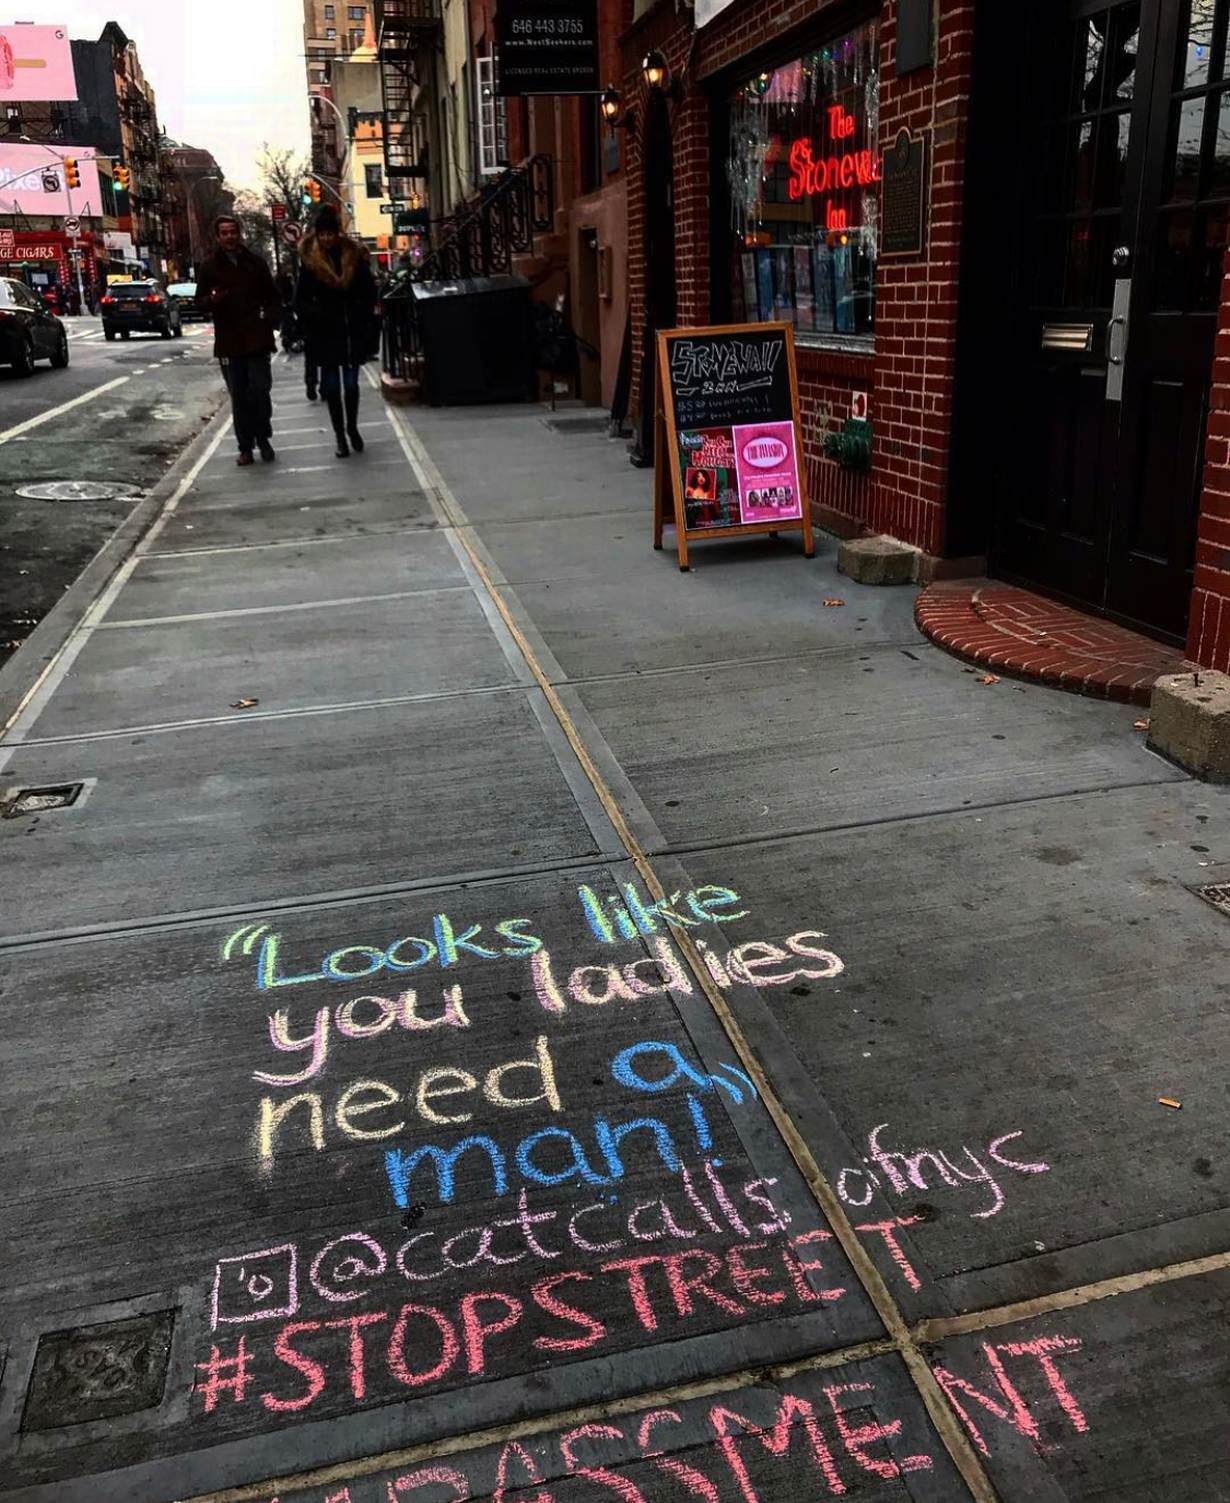 646 443 3755
www.NestSeekers.com
LICENSED REAL ESTATE BROKER
G
GE CIGARS
The
Stonew
Inn
STONEWALL
THE INVASION
"Looks like
you ladies
need a
man!"
@catcalls ofnyc
#STOPSTREET
RASSMENT